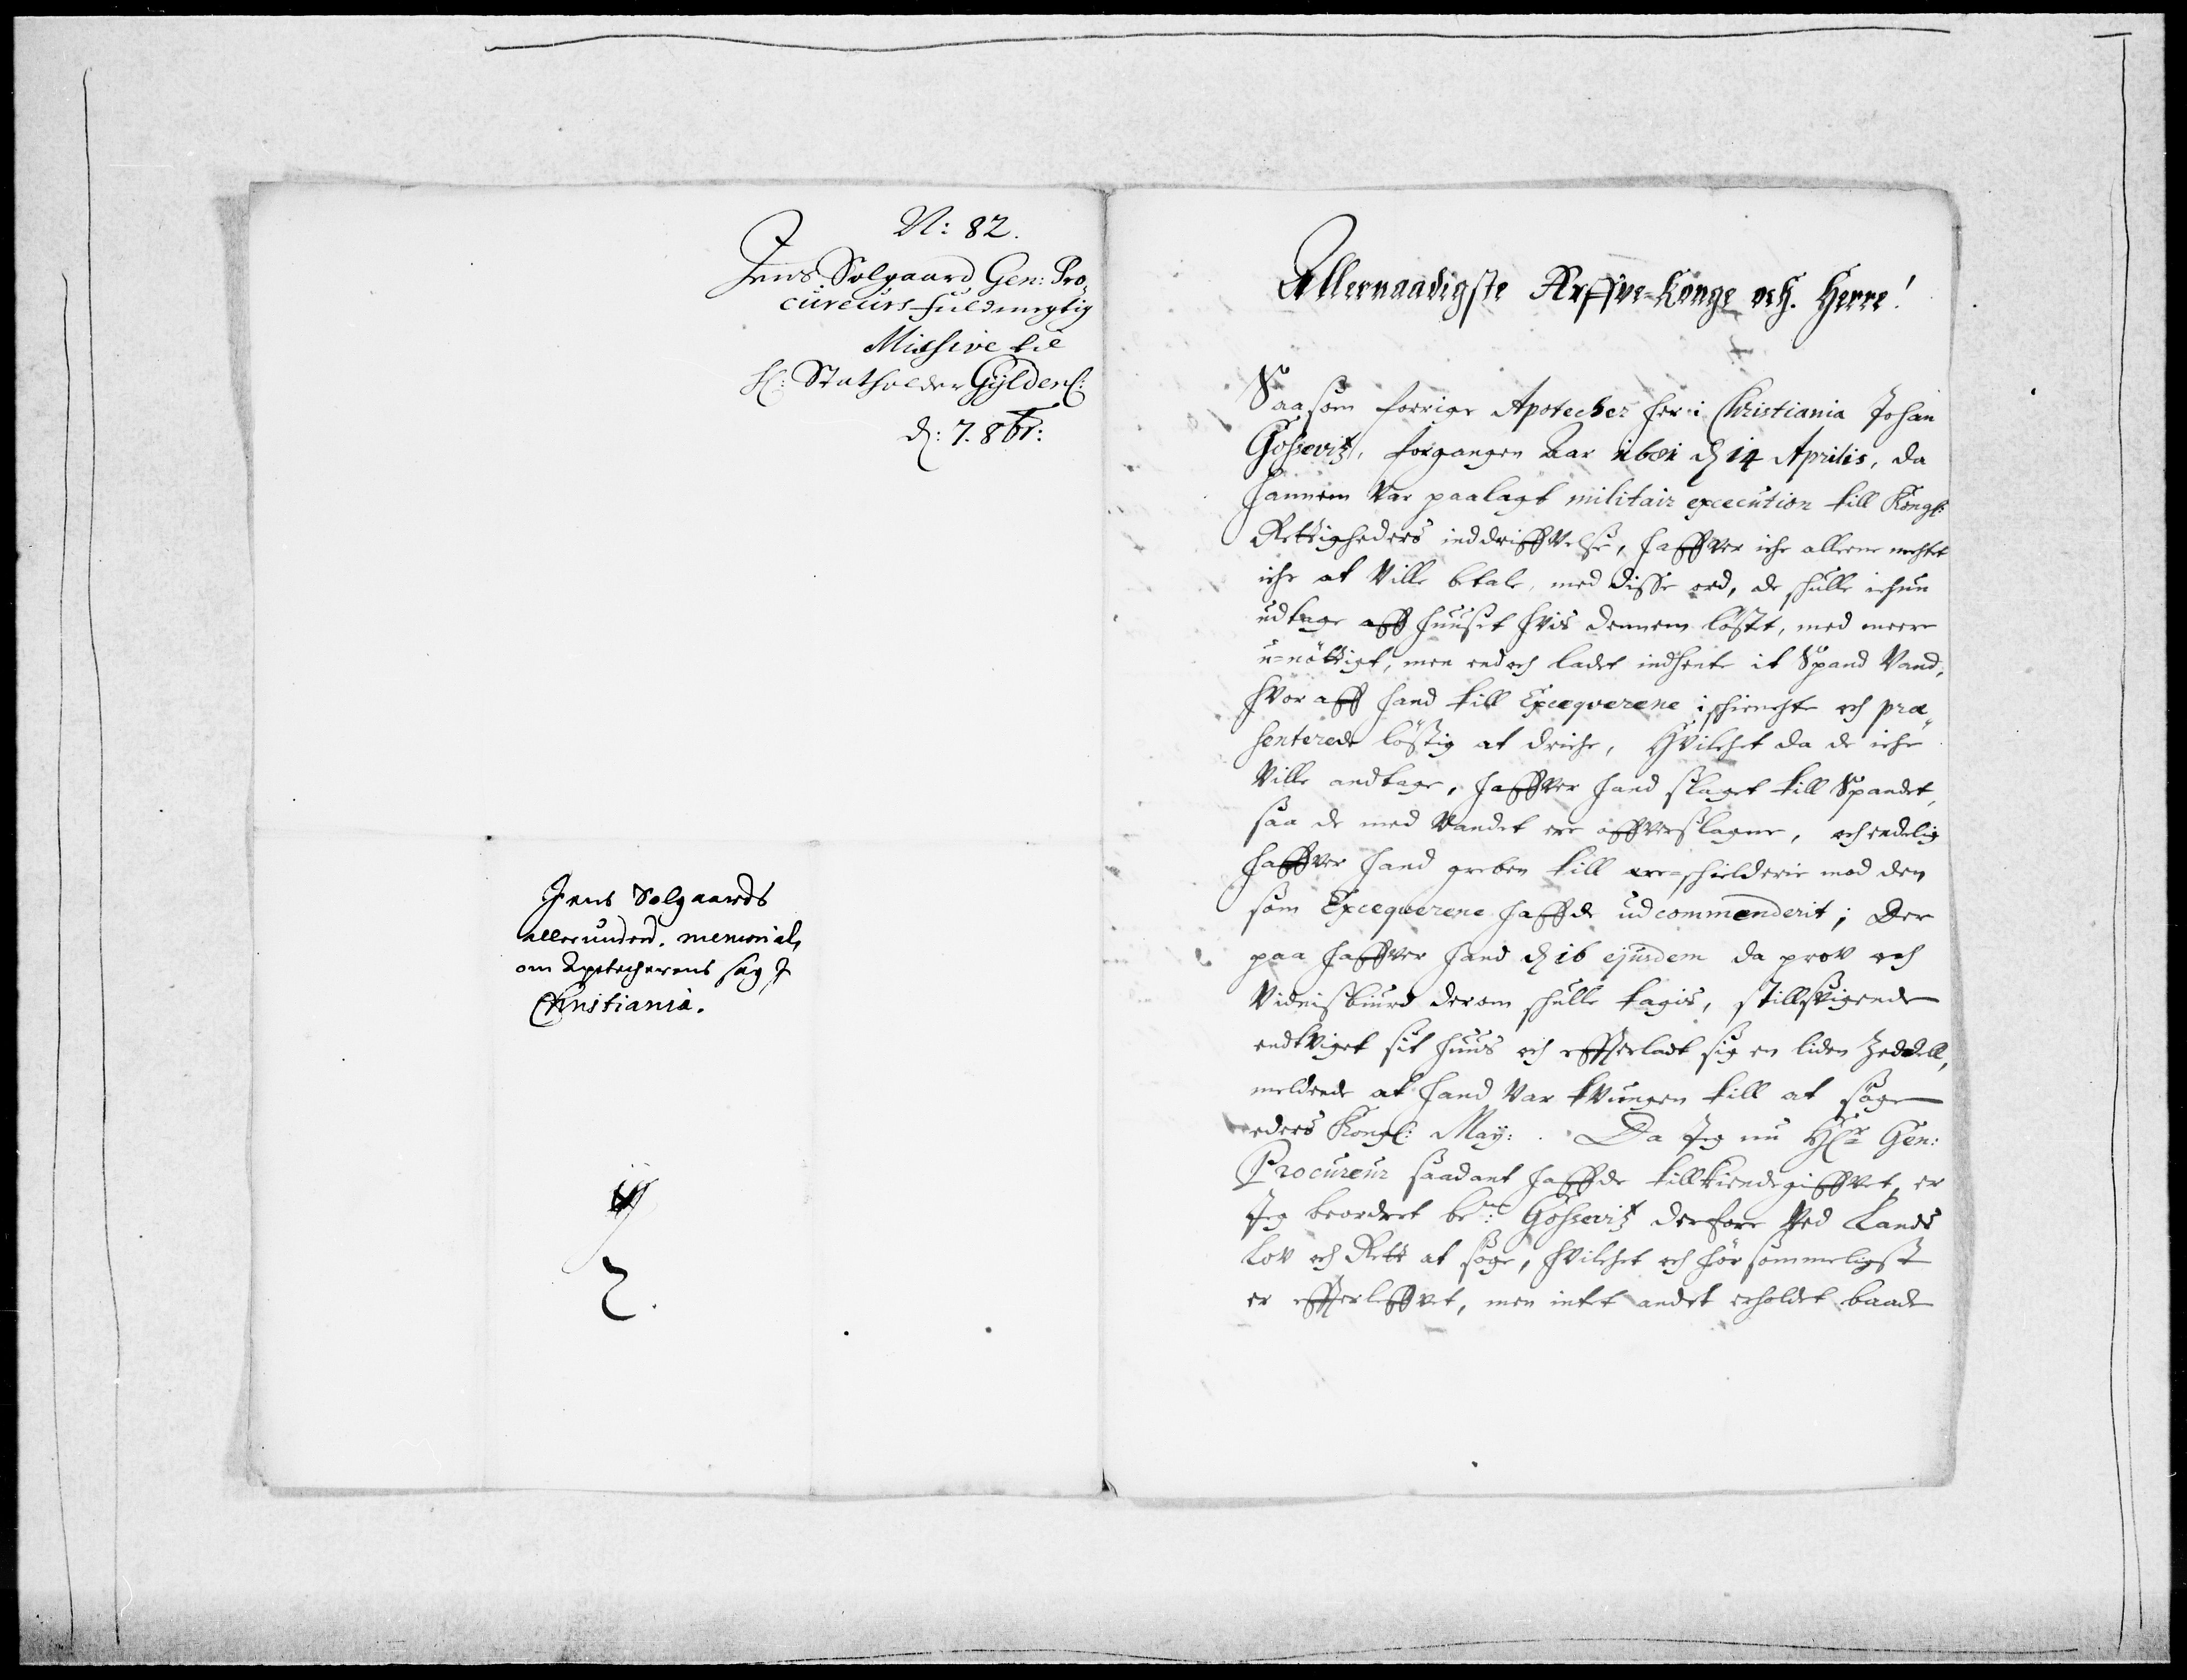 N: 82.
Jens Solgaard Gen: Pro,
cureurs fuldmegtig
Missive til
H: Statholder Gyldenl:
d: 7. 8br:
Jens Solgaards
allerunderd. memorial,
om Apotecherens sag J
Christiania.
Allernaadigste Arffve-Konge och Herre!
Saa som forrige Apotecher her i Christiania Johan
Gossevitz, forgangen Aar 1681 d 14 Aprilis, da
hannem var paalagt militair execution till Kongl:
Rettigheders inddriffvelse, haffver iche alleene negtet
iche at Ville betale, med disse ord, de schulle ichun
udtage aff huuset hvis dennem løstet, med meere
u-nöttigt, men end och ladet indhente it Spand Vand,
hvor aff hand till Execqverene ischienchte och præ
senterede löstig at driche, Hvilchet da de iche
Ville andtage, haffver hand slaget till Spandet,
saa de med Vandet ere offverslagne, och endelig
haffver hand greben till ære-schielderie mod den
som Execqverene haffde udcommenderit; Der
paa haffver hand d 16 ejusdem da prov och
Vidnisbiurd derom schulle tagis, stilltigende
endtviget sit huus och effterladt sig en liden Zeddell,
meldende at hand var tvungen till at søge
eders Kongl: May: . Da Jeg nu Hr Gen:
Procureur saadant haffde tillkiendegiffvet, er
Jeg beordret bem: Gossevitz derfore Ved Lands
Lov och Rett at søge, hvilchet och hørsommeligst
er effterleffvet, men intet andet erholdet baade